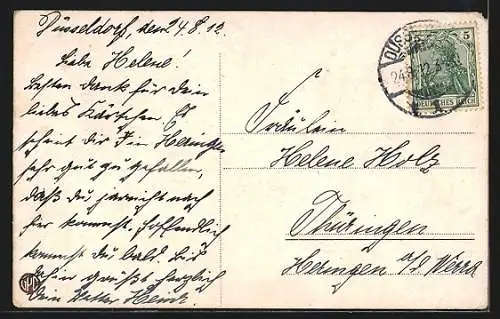 Düsseldorf, den 24.8.12.
Liebe Helene!
Besten Dank für dein
liebes Kärtchen. Es
scheint dir in Heringen
sehr gut zu gefallen,
daß du garnicht nach
hier kommst. Hoffentlich
kommst du bald. Bis
dahin grüßt herzlich
Dein Vetter Heinr.
Fräulein
Helene Holz
Thüringen
Heringen a/d Werra
24.8.12
5
DEUTSCHES REICH